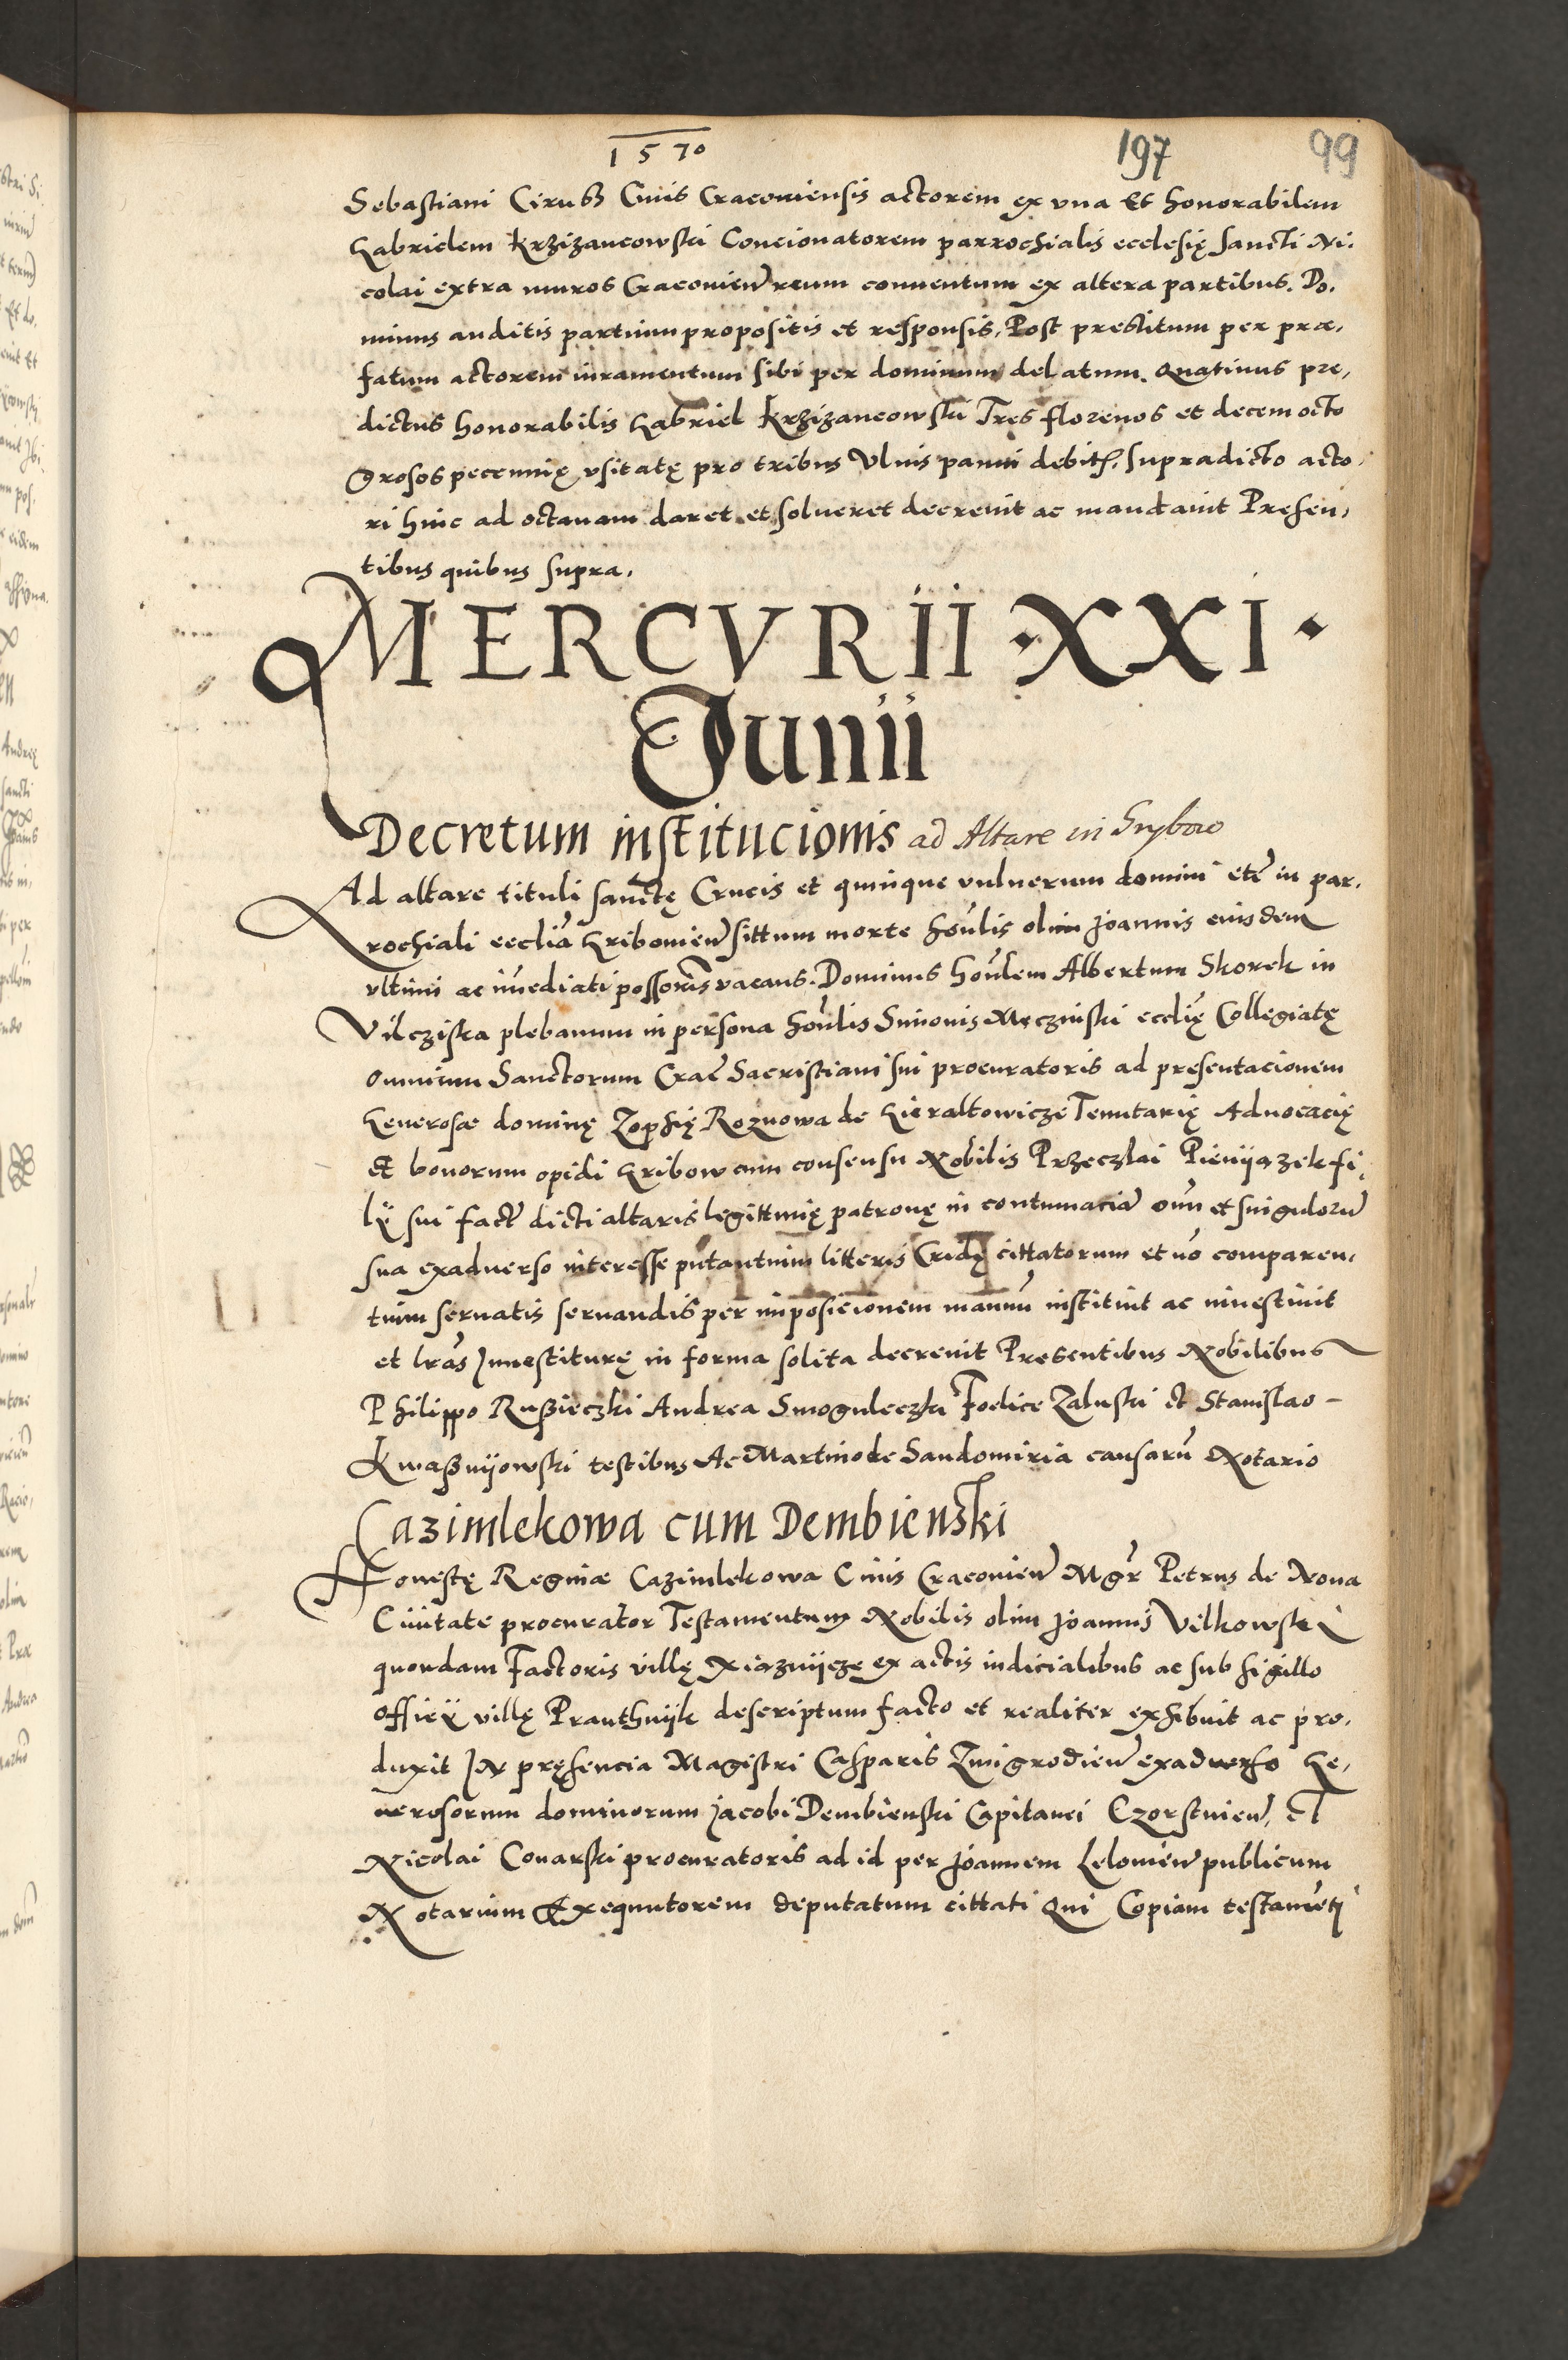 1570
197 99
Sebastiani Cirusz Ciuis Cracouiensis actorem ex vna Et honorabilem
Gabrielem Krzizancowski Concionatorem parrochialis ecclesię sancti Ni.
colai extra muros Cracouien̄ reum conuentum ex altera partibus. Do.
minus auditis partium propositis et responsis, Post prestitum per præ,
fatum actorem iuramentum sibi per dominum delatum. Quatinus pre,
dictus honorabilis Gabriel Krzizancowski Tres florenos et decem octo
Grosos pecunnię vsitatę pro tribus Vlnis panni debit. supradicto acto,
ri hinc ad octauam daret et solueret decreuit ac mandauit Presen,
tibus quibus supra.
MERCVRII · XXI ·
Junii
Decretum institucionis ad Altare in Grybow
Ad altare tituli sanctę Crucis et quinque vulnerum domini etc̄ in par,
rochiali eccliā Gribouien̄ sittum morte hōnlis olim Joannis eiusdem
vltimi ac im̄ediati possoris̄ vacans. Dominus hōnlem Albertum Skorek in
Vilcziska plebanum in persona hōnlis Simonis Męczinski ecclię̄ Collegiatę
omnium Sanctorum Crac̄ Sacristiani sui procuratoris ad presentacionem
Generosæ dominę Zophię Roznowa de Gieraltowicze Tenutarię Aduocacię
Et bonorum opidi Gribow cum consensu Nobilis Przeczlai Pieniązek fi,
lij sui fact̄ dicti altaris legittimię patronę in contumaciā om̄ et singulorū
sua exaduerso interesse putantium litteris Cridę cittatorum et nō comparen,
tium seruatis seruandis per imposicionem manuū instituit ac inuestiuit
et lrās Inuestiturę in forma solita decreuit Presentibus Nobilibus
Philippo Ruszieczki Andrea Smoguleczki Foelice Zaluski et Stanislao –
Kwasznijowski testibus Ac Martino de Sandomiria causarū Notario
Cazimlekowa cum Dembienski
Honestę Reginæ Cazimlekowa Ciuis Cracouien̄ Mgr̄ Petrus de Noua
Ciuitate procurator Testamentum Nobilis olim Joannis Vilkowski
quondam Factoris villę Xiąznijcze ex actis iudicialibus ac sub sigillo
officij villę Pranthnijk descriptum facto et realiter exhibuit ac pro,
duxit IN pręsencia Magistri Casparis Zmigrodien̄ exaduerso Ge,
nerosorum dominorum Jacobi Dembienski Capitanei Czorstuien̄, et
Nicolai Conarski procuratoris ad id per Joannem Lelouien̄ publicum
Notarium Exequutorem deputatum cittati Qui Copiam testamēti